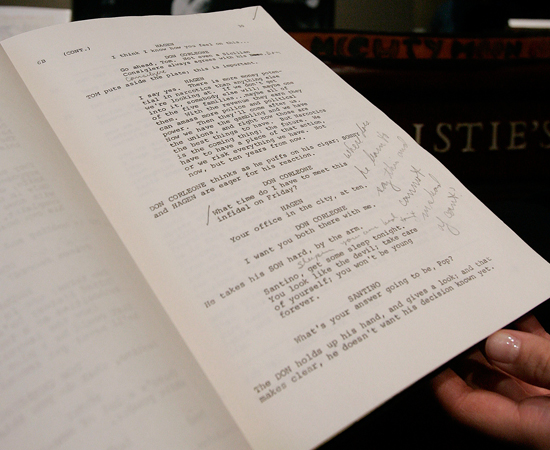 62 (CONT.)
HAGEN
I think I know how you feel on this...
DON CORLEONE
Go ahead, Tom. Not even a Sicilian
Consigliere always agrees with his
TOM puts aside the plate; this is important.
HAGEN
I say yes. There is more money poten-
tial in narcotics than anything else
we're looking at. If we don't get
into it, somebody else will, maybe one
of the five families...maybe all of
them. With the revenue they earn they
can amass more police and political
power. Then they'll come after us.
Now we have the gambling and we have
the unions, and right now those are
the best things to have. But narcotics
is the coming thing; the future. We
have to have a piece of that action,
or we risk everything we have. Not
now, but ten years from now.
DON CORLEONE thinks as he puffs on his cigar; Sonny
and HAGEN are eager for his reaction.
DON CORLEONE
What time do I have to meet this
infidel on Friday?
HAGEN
Your office in the city, at ten.
DON CORLEONE
I want you both there with me.
He takes his SON hard, by the arm.
Santino, get some sleep tonight,
you look like the devil; take care
of yourself; you won't be young
forever.
SANTINO
What's your answer going to be, Pop?
The DON holds up his hand, and gives a look; and that
makes clear, he doesn't want his decision known yet.
MIGHTY MOON
ISTIE'S